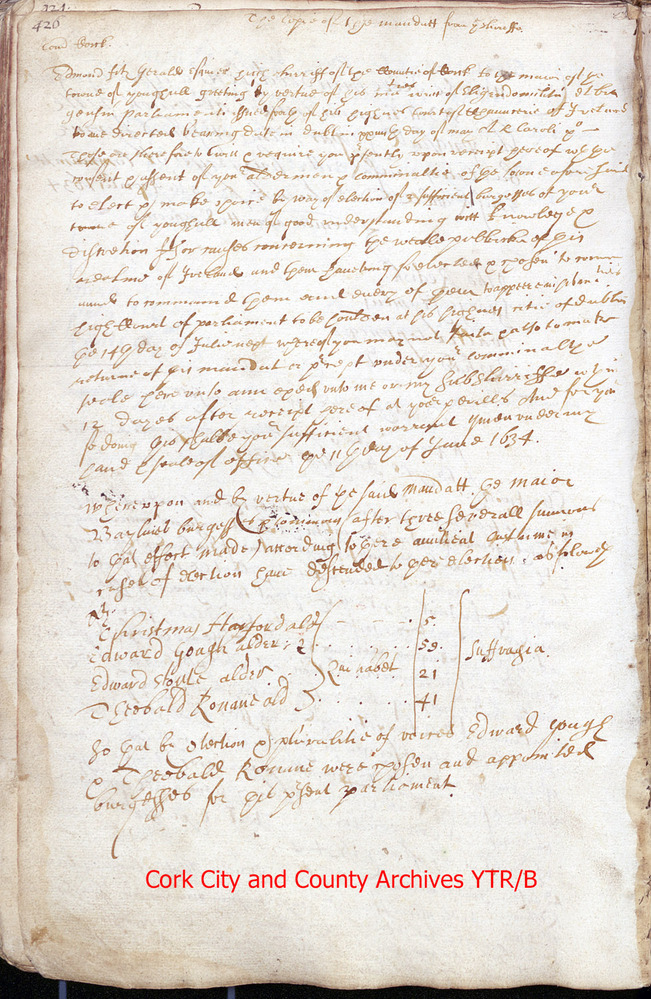 424.
426
The copie of the mandatt from ye sheriffe
Com Cork.
Edmond fitz Gerald esquier high sherriff of the Countie of Cork to the maior of the
towne of youghull greeting by vertue of his writt of
parliamenti issued forth of his highnes Court of Chauncerie of Ireland
to me directed bearing date in dublin day of may Caroli
These are therefore to will & require you presently upon receipt hereof with the
consent & assent of your Aldermen & comminaltie of the towne aforesaid
to elect & make choice by way of election of 2 sufficient burgesses of your
towne of youghull men of good understanding knowledge &
discretion for causes concerning the weale publicke of his
realme of Ireland and them haveing so elected & chosen to come
to command them and every of them to appeere
high Court of parliament to be houlden at his highnes cittie of dublin
the 14th day of Julie next whereof you may not faile & also to make
returne of this mandat or precept under your comminaltye
seale hereunto annexed unto me or my subsherriffe within
12 dayes after receipt hereof at your perills And for you
so doing this shalbe your sufficient warrant given under my
hand & seale of office the 11th day of June 1634.
Whereupon and by vertue of the said mandatt the maior
Bayliues burgess & after three severall summons
to that effect made according to there auntient custume in
of election have discended to her election as followeth
Christmas Harford ald 5.
Edward Gough alder: 59.
Edward alder 21
Theobald Ronane ald 41
Qui habet
Suffragia.
So that by election & pluralitie of voices Edward gough
& Theobald Ronane were chosen and appointed
burgesses for this present parliament
Cork City and County Archives YTR/B